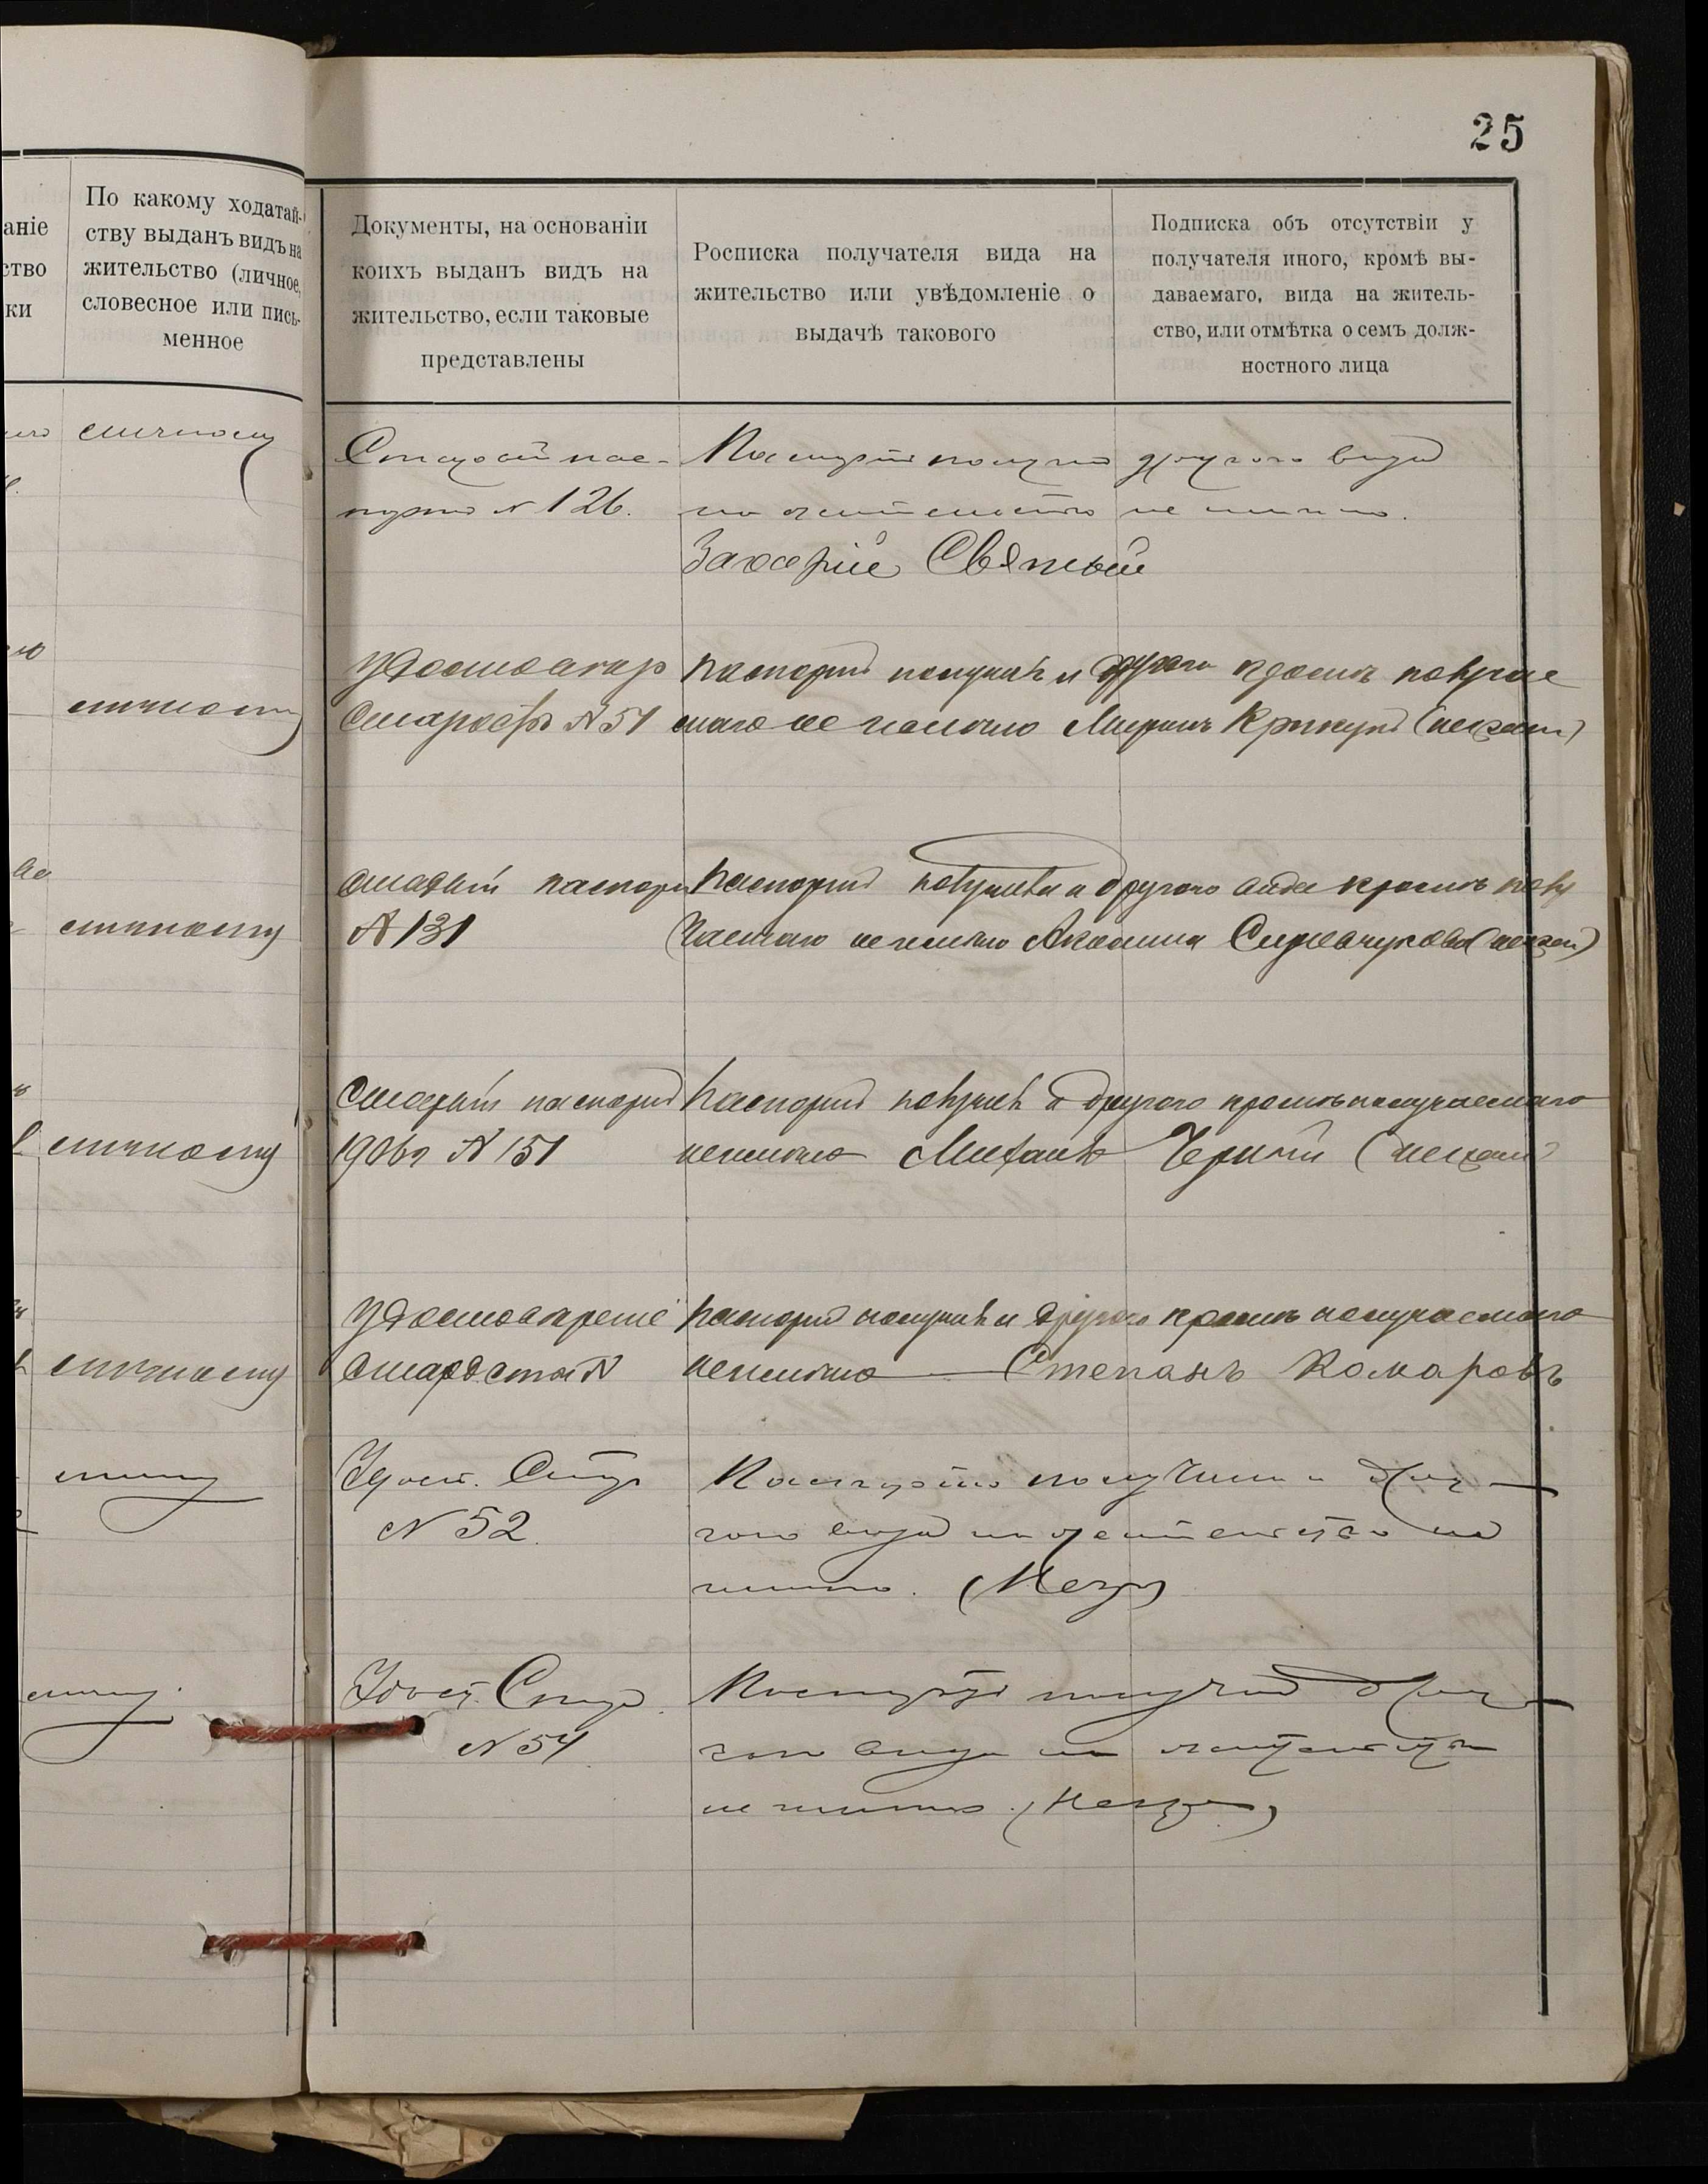 25
аніе
ство
ки
По какому ходатай-
ству выданъ видъ на
жительство (личное,
словесное или пись-
менное
Документы, на основаніи
коихъ выданъ видъ на
жительство, если таковые
представлены
Росписка получателя вида на
жительство или увѣдомленіе о
выдачѣ такового
Подписка объ отсутствіи у
получателя иного, кромѣ вы-
даваемаго, вида на житель-
ство, или отмѣтка о семъ долж-
ностного лица
личному
Старый пас-
портъ № 126.
Паспортъ получилъ другого вида
на жительство не имѣю.
Захарій Святый
личному
Удостовѣр
Старосты № 51
паспортъ получилъ и другого кромѣ получае
маго не имѣю Миронъ Крикунъ (неграм)
личному
старый паспортъ
№ 131
Паспортъ получила и другого вида кромѣ полу
чаемаго не имѣю Акилина (неграм)
личному
старый паспортъ
1906 г № 151
Паспортъ получилъ и другого кромѣ получаемаго
не имѣю Михаилъ Черный (неграм)
личному
Удостовѣрение
старосты №
Паспортъ получилъ и другого кромѣ получаемаго
не имѣю Степанъ Комаровъ
личному
Удост. Стар
№ 52.
Паспортъ получилъ и дру-
гого вида на жительство не
имѣю. (Негр)
личному
Удост. Стар.
№ 54
Паспортъ получилъ дру-
гого вида на жительство
не имѣю. (Негр)